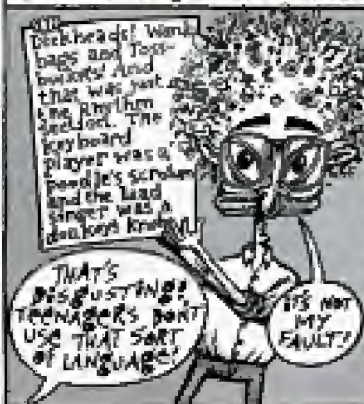 Dickheads! Wank
bags and Toss-
And
that was just
the rhythm
section. The
keyboard
player was a
poodle's scrotum
and the lead
singer was a
donkey's
THAT'S
DISGUSTING!
TEENAGERS DON'T
USE THAT SORT
OF LANGUAGE!
IT'S NOT
MY
FAULT!